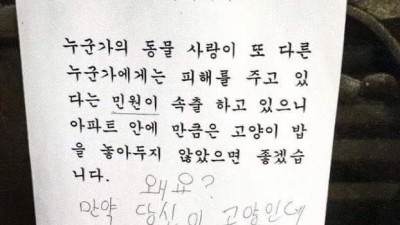 누군가의 동물 사랑이 또 다른
누군가에게는 피해를 주고 있
다는 민원이 속출 하고 있으니
아파트 안에 만큼은 고양이 밥
을 놓아두지 않았으면 좋겠습
니다.
왜요?
만약 당신이 고양인데